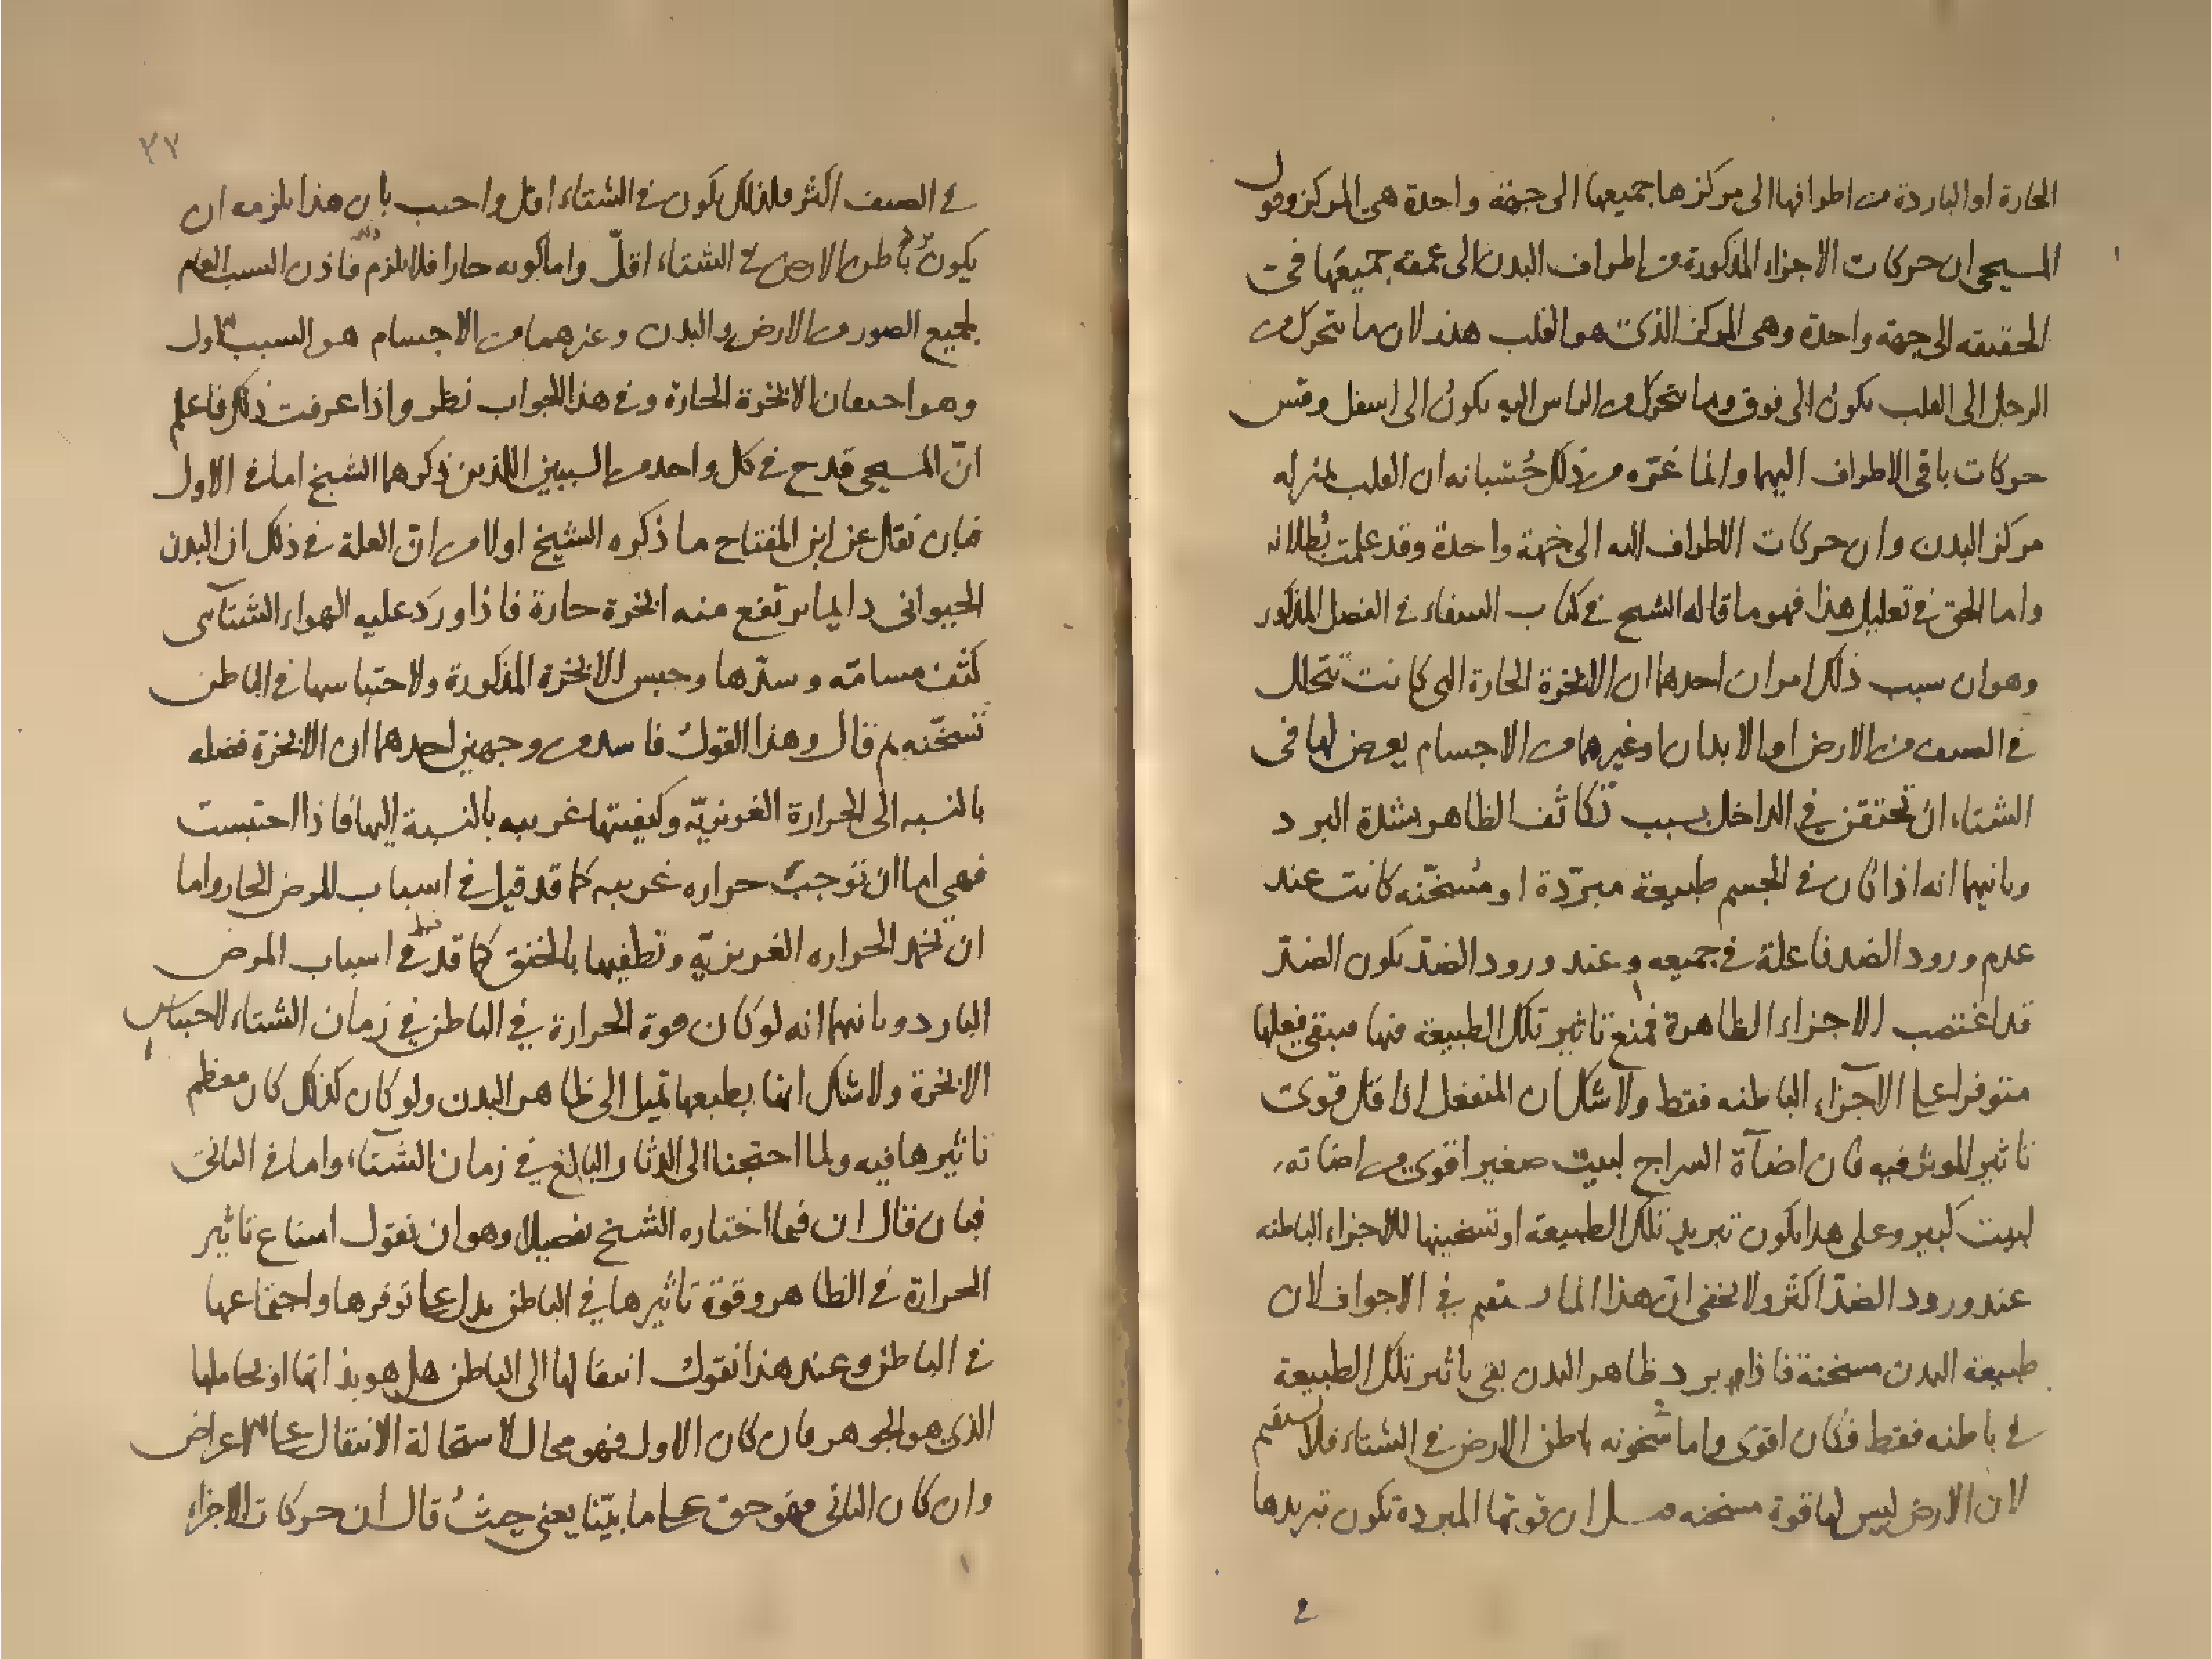 الحارة او الباردة من اطرافها الى مركزها جميعها الى جهة واحدة هى المركز وقول
المسيحى ان حركات الاجزاء المذكورة من اطراف البدن الى عمقه جميعها فى
الحقيقه الى جهة واحدة وهى المركز الذى هو القلب هذر لان ما يتحرك من
الرجل الى القلب يكون الى فوق وما يتحرك من الراس اليه يكون الى اسفل وقس
حركات باقى الاطراف اليها وانما غره من ذلك حسبانه ان القلب بمنزله
مركز البدن وان حركات الاطراف اليه الى جهة واحدة وقد علمت بطلانه
واما الحق فى تعليل هذا فهو ما قاله الشيخ فى كتاب الشفاء فى الفصل المذكور
وهو ان سبب ذلك امران احدهما ان الابخرة الحارة التى كانت تتحلل
فى الصيف من الارض او الابدان او غيرهما من الاجسام يعرض لها فى
الشتاء ان تحتقن فى الداخل بسبب تكاثف الظاهر بشدة البرد
وثانيهما انه اذا كان فى الجسم طبيعة مبردة او مسخنه كانت عند
عدم ورود الضد فاعلة فى جميعه وعند ورود الضد يكون الضد
قد اغتصب الاجزاء الظاهرة فمنع تاثير تلك الطبيعة فيها فيبقى فعلها
متوفرا على الاجزاء الباطنه فقط ولا شك ان المنفعل اذا قل قوى
تاثير الموثر فيه فان اضآة السراج لبيت صغير اقوى من اضاته
لبيت كبير وعلى هذا يكون تبريد تلك الطبيعة او تسخينها للاجزاء الباطنه
عند ورود الضد اكثر ولا يخفى ان هذا انما يستقيم فى الاجواف لان
طبيعة البدن مسخنة فاذا برد ظاهر البدن بقى تاثير تلك الطبيعة
فى باطنه فقط فكان اقوى واما سخونه باطن الارض فى الشتاء فلا يستقيم
لان الارض ليس لها قوة مسخنه بل ان قوتها المبردة تكون تبريدها
٢٧
فى الصيف اكثر فلذلك يكون فى الشتاء اقل واجيب بان هذا يلزمه ان
يكون برد باطن الارض فى الشتاء اقل واما كونه حارا فلا يلزم فاذن السبب العام
لجميع الصور من الارض والبدن وغيرهما من الاجسام هو السبب الاول
وهو احتقان الابخرة الحارة وفى هذا الجواب نظر واذا عرفت ذلك فاعلم
ان المسيحى قدح فى كل واحد من السببين اللذين ذكرهما الشيخ اما فى الاول
فبان نقل عن ابن المفتاح ما ذكره الشيخ اولا من ان العلة فى ذلك ان البدن
الحيوانى دايما يرتفع منه ابخرة حارة فاذا ورد عليه الهواء الشتآى
كثف مسامه وسدها وحبس الابخرة المذكورة ولاحتباسها فى الباطن
تسخنه ثم قال وهذا القول فاسد من وجهين احدهما ان الابخرة فضله
بالنسبه الى الحرارة الغريزية وكيفيتها غريبه بالنسبة اليها فاذا احتبست
فهى اما ان توجب حراره غريبه كما قد قيل فى اسباب المرض الحار واما
ان تخمد الحراره الغريزية وتطفيها بالخنق كما قد قيل فى اسباب المرض
البارد وثانيهما انه لو كان قوة الحرارة فى الباطن فى زمان الشتاء لاحتباس
الابخرة ولا شك انها بطبعها تميل الى ظاهر البدن ولو كان كذلك كان معظم
تاثيرها فيه ولما احتجنا الى الدثار البالغ فى زمان الشتآء واما فى الثانى
فبان قال ان فيما اختاره الشيخ تفصيلا وهو ان نقول امتناع تاثير
الحرارة فى الظاهر وقوة تاثيرها فى الباطن يدل على توفرها واجتماعها
فى الباطن وعند هذا نقول انتقالها الى الباطن هل هو بذاتها او بحاملها
الذى هو الجوهر فان كان الاول فهو محال لاستحالة الانتقال على الاعراض
وان كان الثانى فهو حق على ما بينا يعنى حيث قال ان حركات الاجزاء